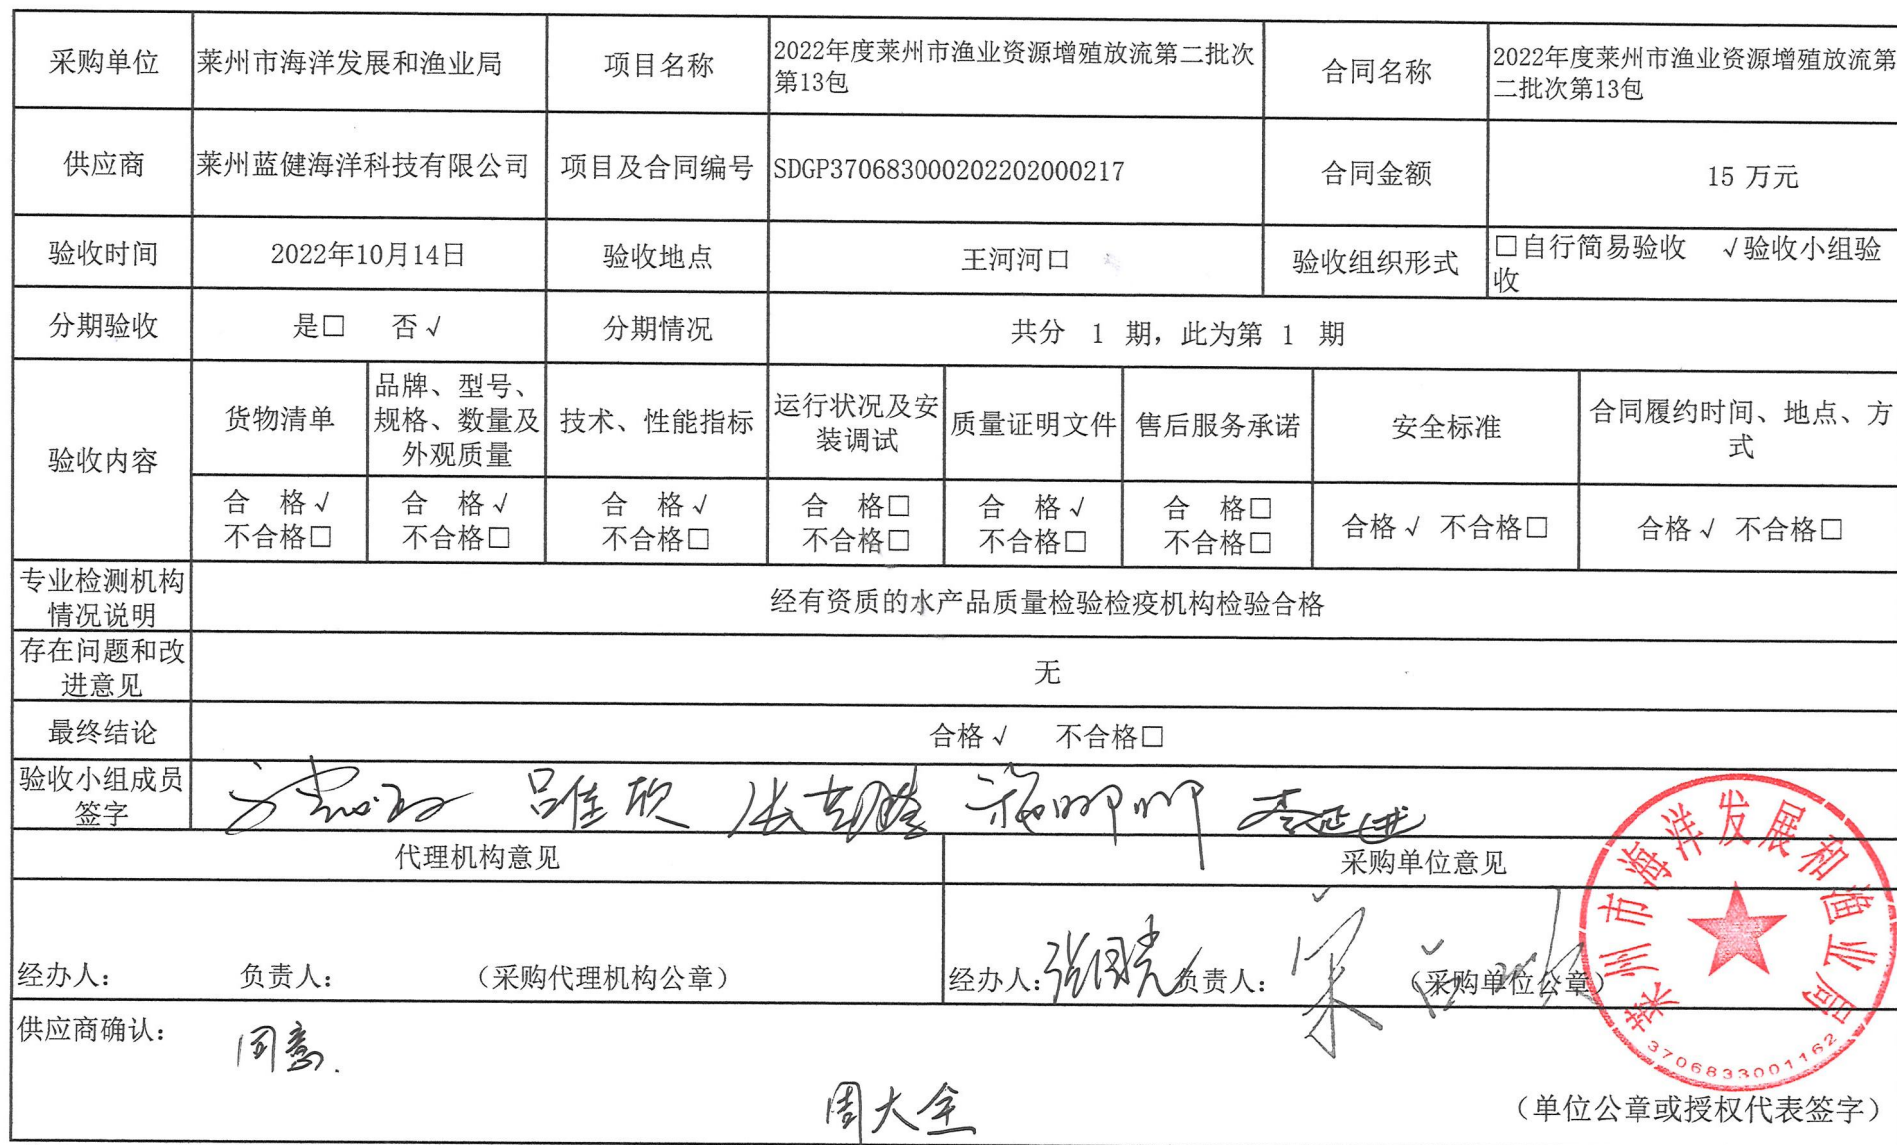 采购单位 莱州市海洋发展和渔业局 项目名称 2022年度莱州市渔业资源增殖放流第二批次
第13包 合同名称 2022年度莱州市渔业资源增殖放流第
二批次第13包
供应商 莱州蓝健海洋科技有限公司 项目及合同编号 SDGP370683000202202000217 合同金额 15 万元
验收时间 2022年10月14日 验收地点 王河河口 验收组织形式 □自行简易验收 √验收小组验
收
分期验收 是□ 否√ 分期情况 共分 1 期，此为第 1 期
验收内容
货物清单
品牌、型号、
规格、数量及
外观质量
技术、性能指标
运行状况及安
装调试
质量证明文件
售后服务承诺
安全标准
合同履约时间、地点、方
式
合 格√
不合格□
合 格√
不合格□
合 格√
不合格□
合 格□
不合格□
合 格√
不合格□
合 格□
不合格□
合格√ 不合格□
合格√ 不合格□
专业检测机构
情况说明
经有资质的水产品质量检验检疫机构检验合格
存在问题和改
进意见
无
最终结论 合格√ 不合格□
验收小组成员
签字
吕佳欣 李延进
代理机构意见 采购单位意见
经办人： 负责人： （采购代理机构公章） 经办人：张国亮 负责人： （采购单位公章）
供应商确认：
同意.
周大全
（单位公章或授权代表签字）
莱州市海洋发展和渔业局
3706833001162